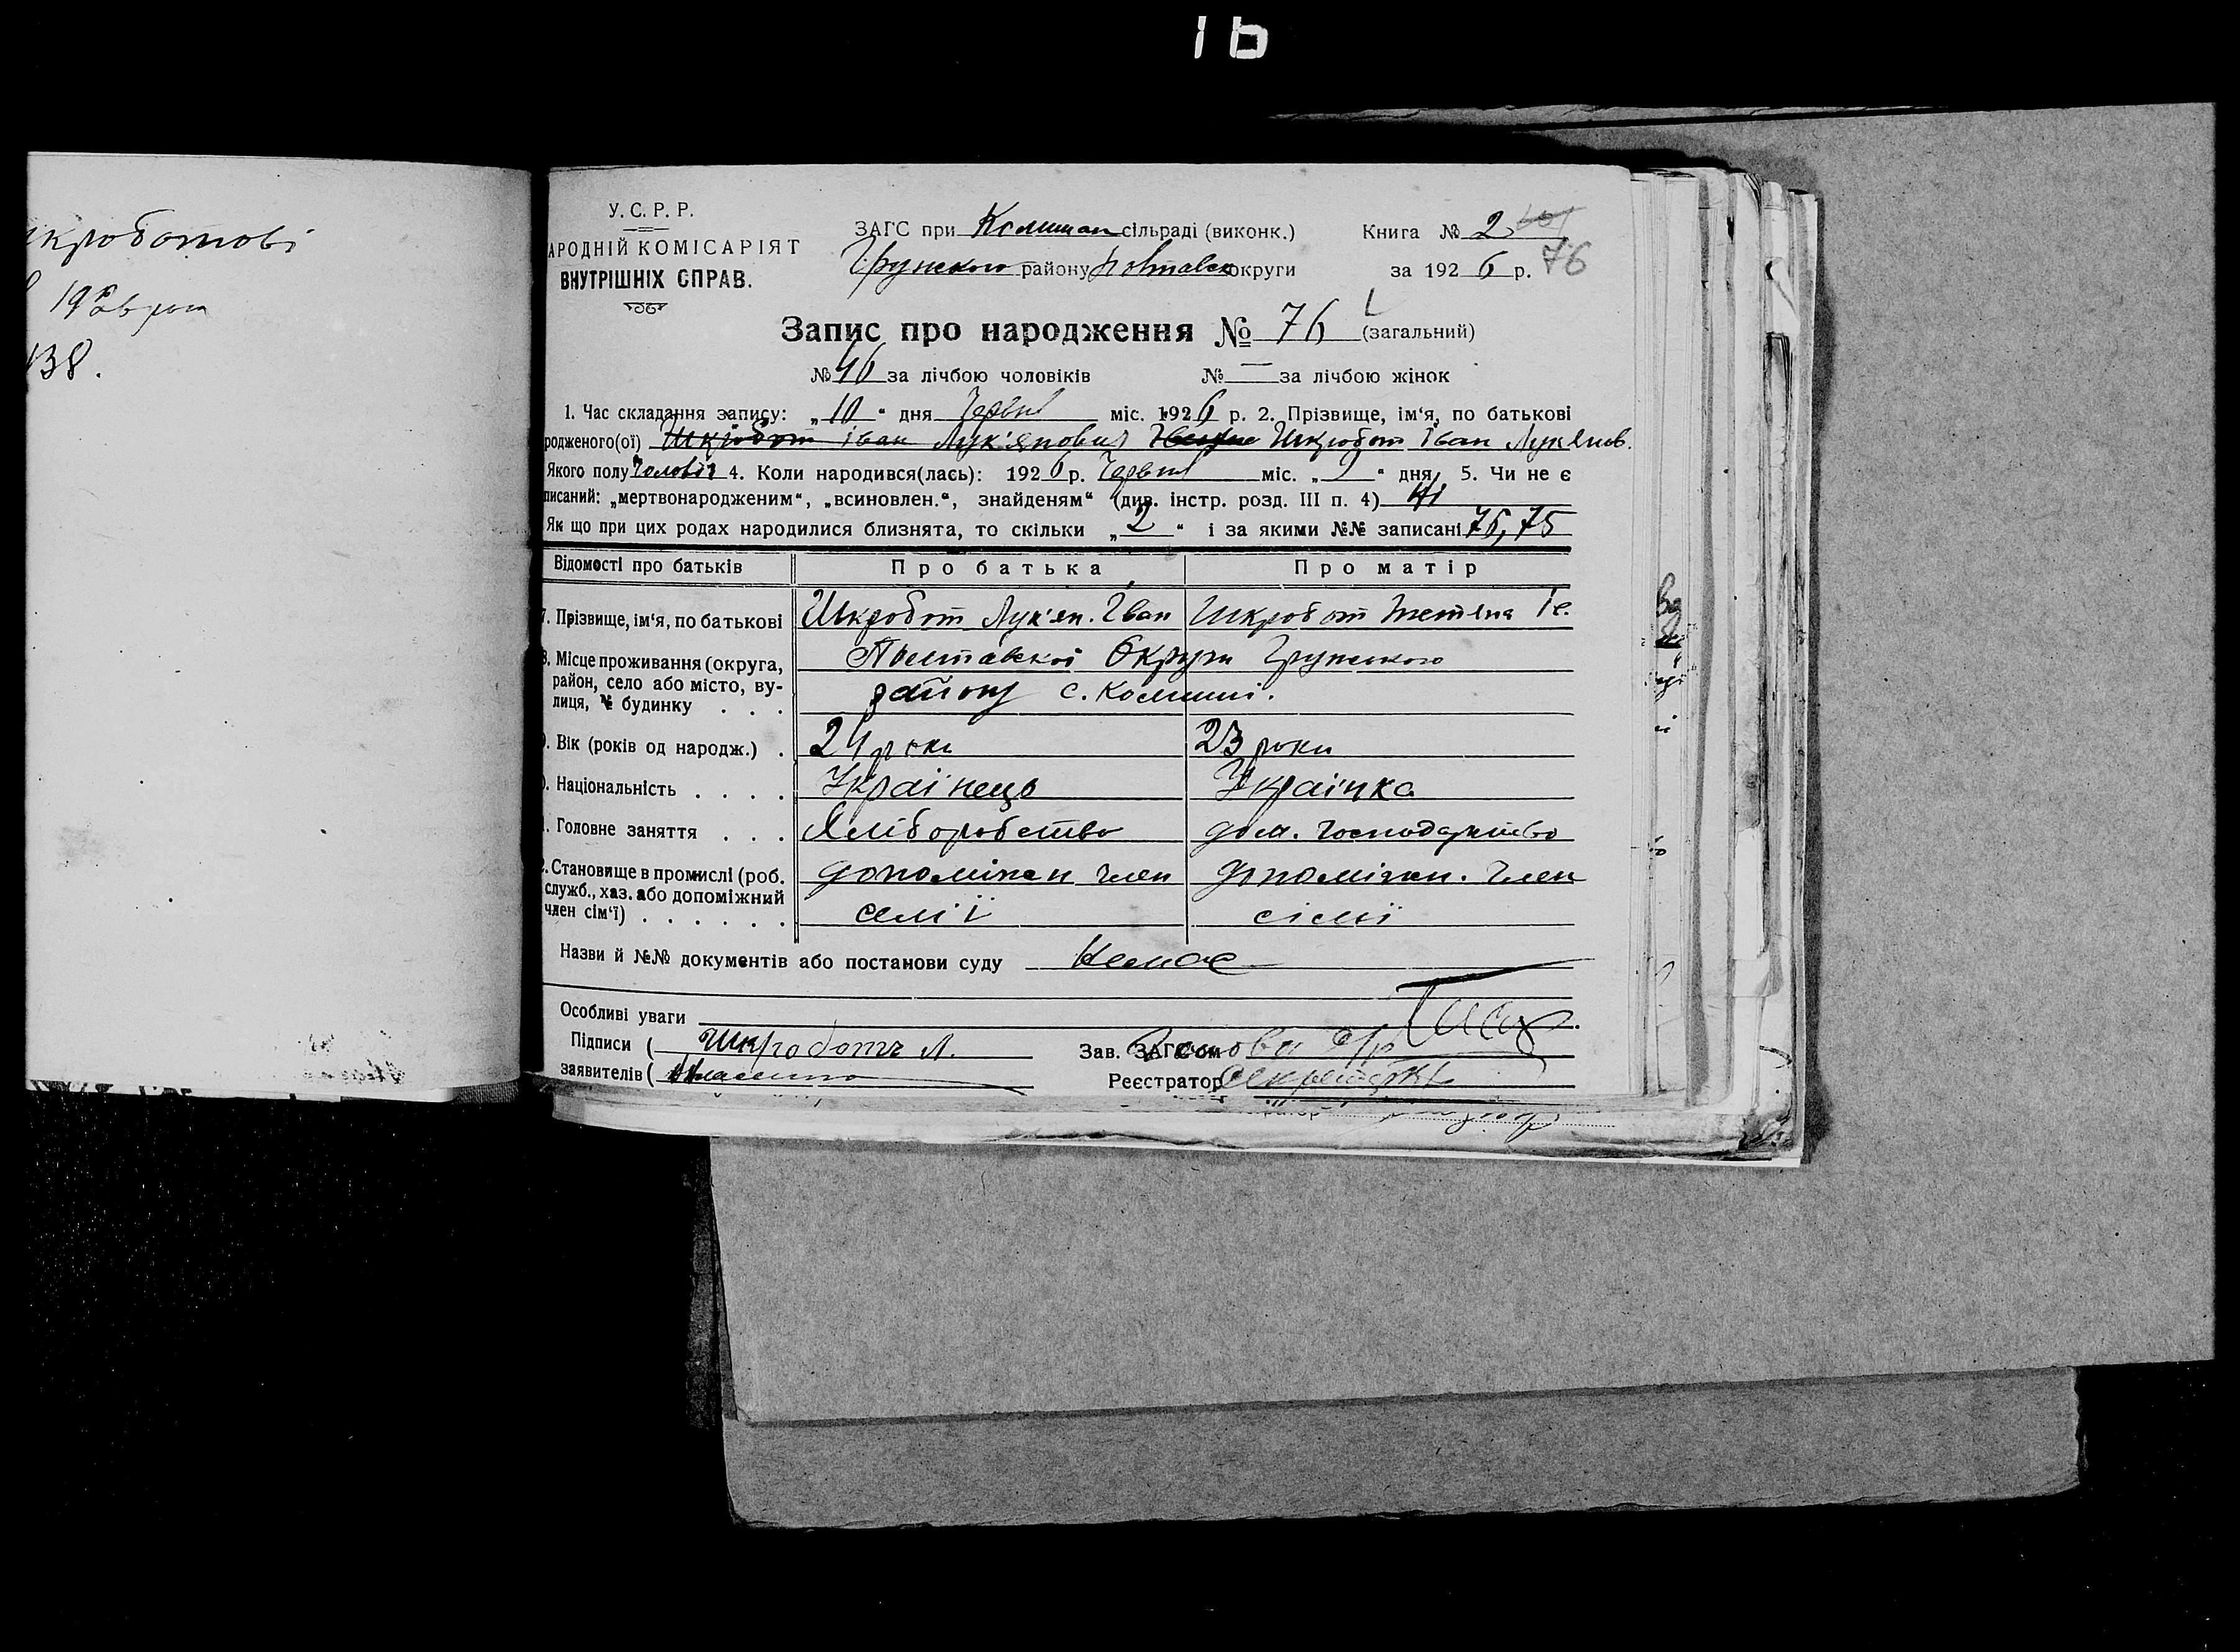 16
кроботові
138.
У. С. Р. Р.
АРОДНІЙ КОМІСАРІЯТ
ВНУТРІШНІХ СПРАВ.
ЗАГС при Комиш сільраді (виконк.)
Грунського району Полтавск округи
Книга № 2
за 1926 р. 76
Запис про народження № 76 (загальний)
№ 46 за лічбою чоловіків № — за лічбою жінок
1. Час складання запису: „10“ дня Червня міс. 1926 р. 2. Прізвище, ім‘я, по батькові
родженого(ої) Шкробот Іван Лук'янович Шкробот Іван Лукянов.
Якого полу Чоловіч 4. Коли народився(лась): 1926 р. Червня міс. „ “ дня 5. Чи не є
писаний: „мертвонародженим“, „всиновлен.“, знайденям“ (див. інстр. розд. III п. 4) Ні
Як що при цих родах народилися близнята, то скільки „2“ і за якими №№ записані 76, 75
Відомості про батьків Про батька Про матір
7. Прізвище, ім‘я, по батькові Шкробот Лук'ян. Іван Шкробот Тетяна
8. Місце проживання (округа, район, село або місто, вулиця, № будинку . . . Полтавскої Округи Грунського
району с. Комиші.
9. Вік (років од народж.) . 24 роки 23 роки
. Національність . . . . Українець Українка
. Головне заняття . . . Хліборобство дом. господарство
. Становище в промислі (роб. служб., хаз. або допоміжний член сім‘ї) . . . . . . допоміжн член допоміжн. член
семії сімї
Назви й №№ документів або постанови суду Немає
Особливі уваги
Підписи ( Шкроботъ Л.
заявителів (
Зав. ЗАГСом Голова с/р
Реєстратор Секретарь